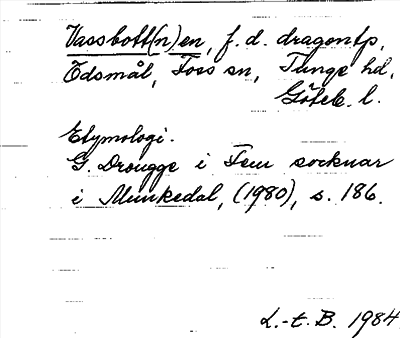 Vassbott(n)en, f. d. dragontp,
Ödsmål, Foss sn, Tunge hd,
Göteb. l.
Etymologi.
G. Drougge i Fem socknar
i Munkedal, (1980), s. 186.
L.-t. B. 1984.